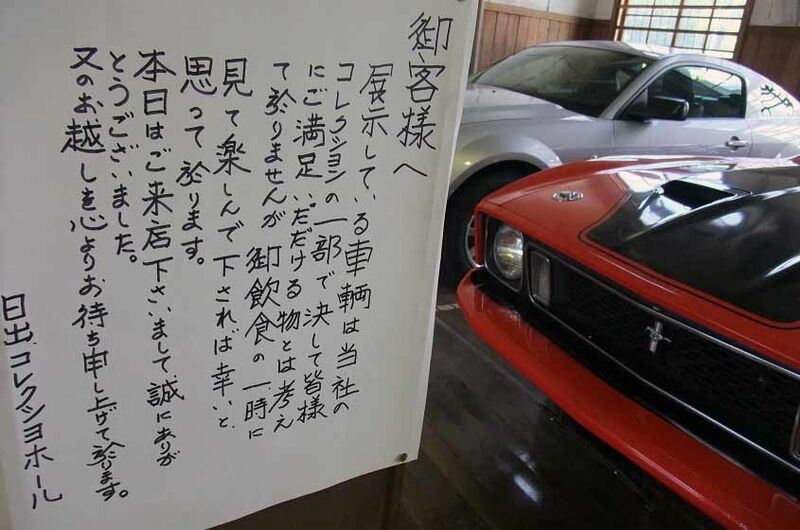 御客様へ
展示している車輌は当社の
コレクションの一部で決して皆様
にご満足いただける物とは考え
て於りませんが御飲食の一時に
見て楽しんで下されば幸いと
思って於ります。
本日はご来店下さいまして誠にありが
とうございました。
又のお越しを心よりお待ち申し上げて於ります。
日出コレクションホール